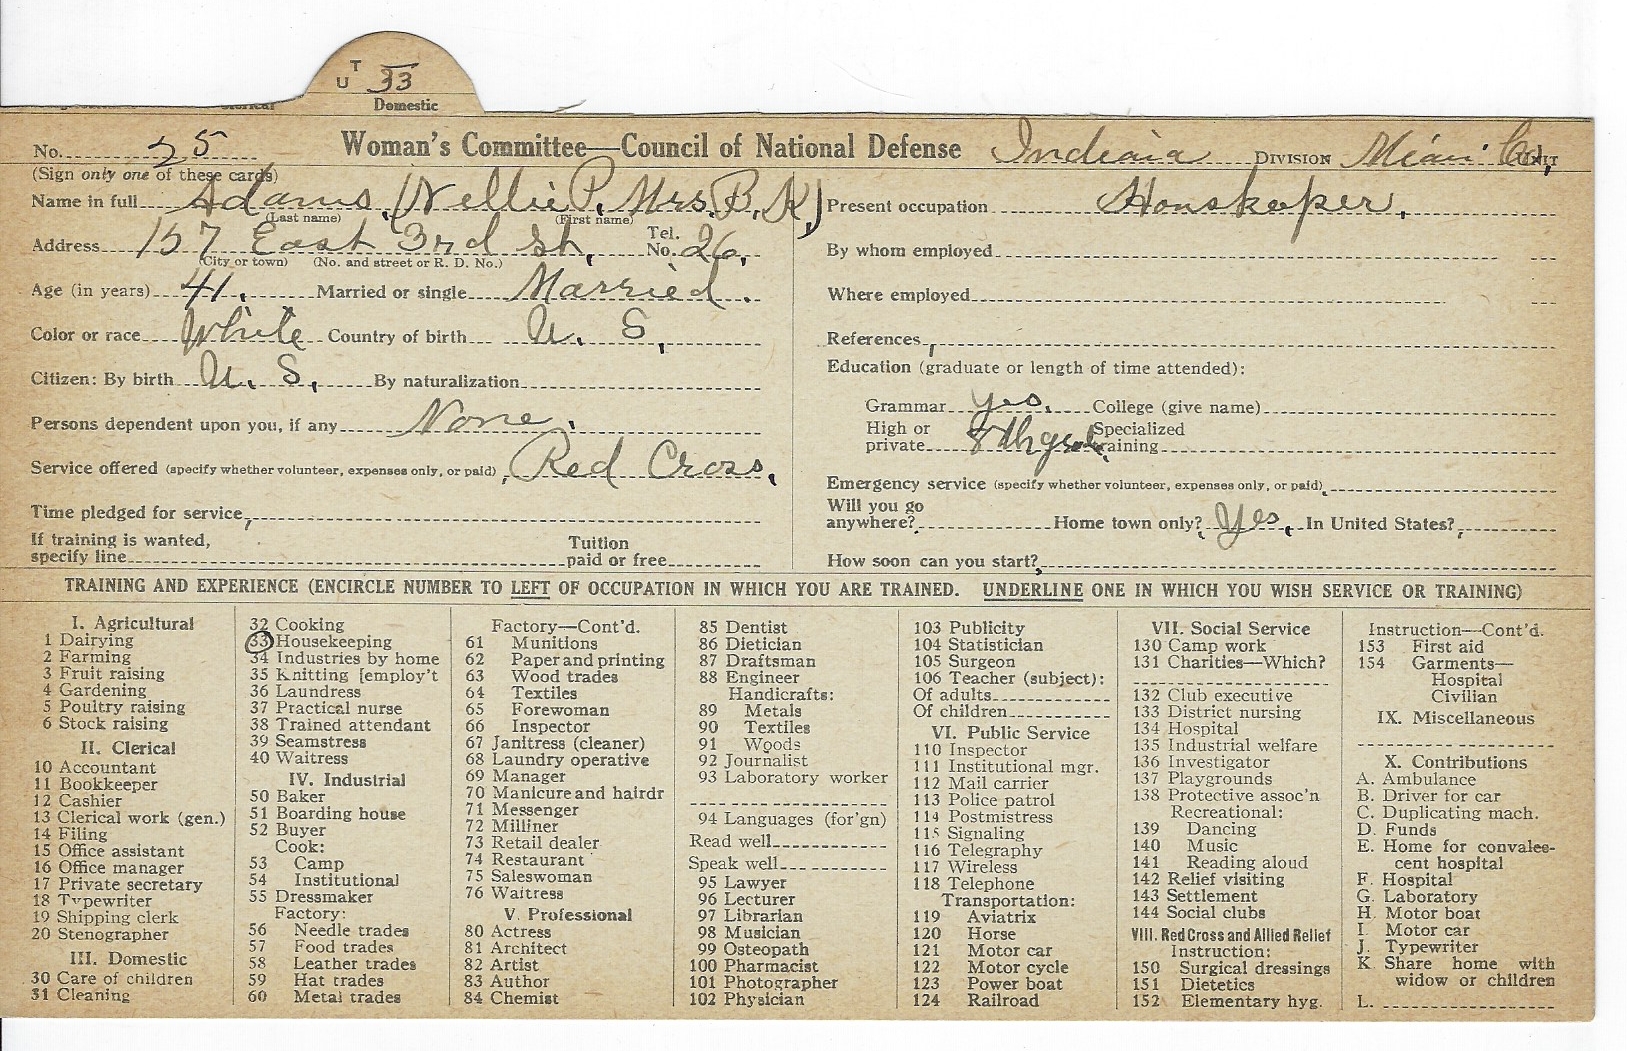 T
U 33
Domestic
No. 25 Woman's Committee—Council of National Defense Indiaia DIVISION Miami Co., UNIT
(Sign only one of these cards)
Name in full Adams, (Nellie P, Mrs. B. K)
(Last name) (First name)
Address 157 East 3rd St, Tel. No. 26,
(City or town) (No. and street or R. D. No.)
Age (in years) 41. Married or single Married.
Color or race White Country of birth U. S,
Citizen: By birth U. S, By naturalization
Persons dependent upon you, if any None,
Service offered (specify whether volunteer, expenses only, or paid), Red Cross,
Time pledged for service,
If training is wanted,
specify line Tuition
paid or free
Present occupation Houskeeper,
By whom employed
Where employed
References,
Education (graduate or length of time attended):
Grammar Yes. College (give name)
High or
private 8th grade, Specialized
training
Emergency service (specify whether volunteer, expenses only, or paid),
Will you go
anywhere? Home town only? Yes, In United States?,
How soon can you start?
TRAINING AND EXPERIENCE (ENCIRCLE NUMBER TO LEFT OF OCCUPATION IN WHICH YOU ARE TRAINED. UNDERLINE ONE IN WHICH YOU WISH SERVICE OR TRAINING)
I. Agricultural
1 Dairying
2 Farming
3 Fruit raising
4 Gardening
5 Poultry raising
6 Stock raising
II. Clerical
10 Accountant
11 Bookkeeper
12 Cashier
13 Clerical work (gen.)
14 Filing
15 Office assistant
16 Office manager
17 Private secretary
18 Typewriter
19 Shipping clerk
20 Stenographer
III. Domestic
30 Care of children
31 Cleaning
32 Cooking
33 Housekeeping
34 Industries by home
35 Knitting [employ't
36 Laundress
37 Practical nurse
38 Trained attendant
39 Seamstress
40 Waitress
IV. Industrial
50 Baker
51 Boarding house
52 Buyer
Cook:
53 Camp
54 Institutional
55 Dressmaker
Factory:
56 Needle trades
57 Food trades
58 Leather trades
59 Hat trades
60 Metal trades
Factory—Cont'd.
61 Munitions
62 Paper and printing
63 Wood trades
64 Textiles
65 Forewoman
66 Inspector
67 Janitress (cleaner)
68 Laundry operative
69 Manager
70 Manicure and hairdr
71 Messenger
72 Milliner
73 Retail dealer
74 Restaurant
75 Saleswoman
76 Waitress
V. Professional
80 Actress
81 Architect
82 Artist
83 Author
84 Chemist
85 Dentist
86 Dietician
87 Draftsman
88 Engineer
Handicrafts:
89 Metals
90 Textiles
91 Woods
92 Journalist
93 Laboratory worker
94 Languages (for'gn)
Read well
Speak well
95 Lawyer
96 Lecturer
97 Librarian
98 Musician
99 Osteopath
100 Pharmacist
101 Photographer
102 Physician
103 Publicity
104 Statistician
105 Surgeon
106 Teacher (subject):
Of adults
Of children
VI. Public Service
110 Inspector
111 Institutional mgr.
112 Mail carrier
113 Police patrol
114 Postmistress
115 Signaling
116 Telegraphy
117 Wireless
118 Telephone
Transportation:
119 Aviatrix
120 Horse
121 Motor car
122 Motor cycle
123 Power boat
124 Railroad
VII. Social Service
130 Camp work
131 Charities—Which?
132 Club executive
133 District nursing
134 Hospital
135 Industrial welfare
136 Investigator
137 Playgrounds
138 Protective assoc'n
Recreational:
139 Dancing
140 Music
141 Reading aloud
142 Relief visiting
143 Settlement
144 Social clubs
VIII. Red Cross and Allied Relief
Instruction:
150 Surgical dressings
151 Dietetics
152 Elementary hyg.
Instruction—Cont'd.
153 First aid
154 Garments—
Hospital
Civilian
IX. Miscellaneous
X. Contributions
A. Ambulance
B. Driver for car
C. Duplicating mach.
D. Funds
E. Home for convales-
cent hospital
F. Hospital
G. Laboratory
H. Motor boat
I. Motor car
J. Typewriter
K. Share home with
widow or children
L.